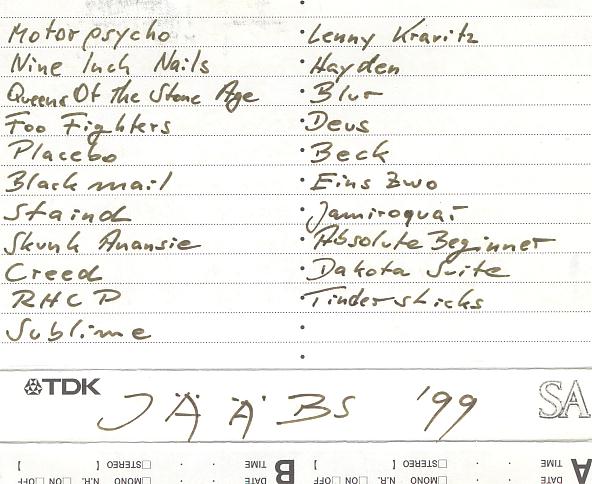 Motorpsycho
Nine Inch Nails
Queens Of the Stone Age
Foo Fighters
Placebo
Blackmail
Staind
Skunk Anansie
Creed
RHCP
Sublime
· Lenny Kravitz
· Hayden
· Blur
· Deus
· Beck
· Eins Zwo
· Jamiroquai
· Absolute Beginner
· Dakota Suite
· Tindersticks
TDK JÄÄBS '99 SA
A DATE TIME N.R. □ON □OFF □MONO □STEREO [ ]
B DATE TIME N.R. □ON □OFF □MONO □STEREO [ ]